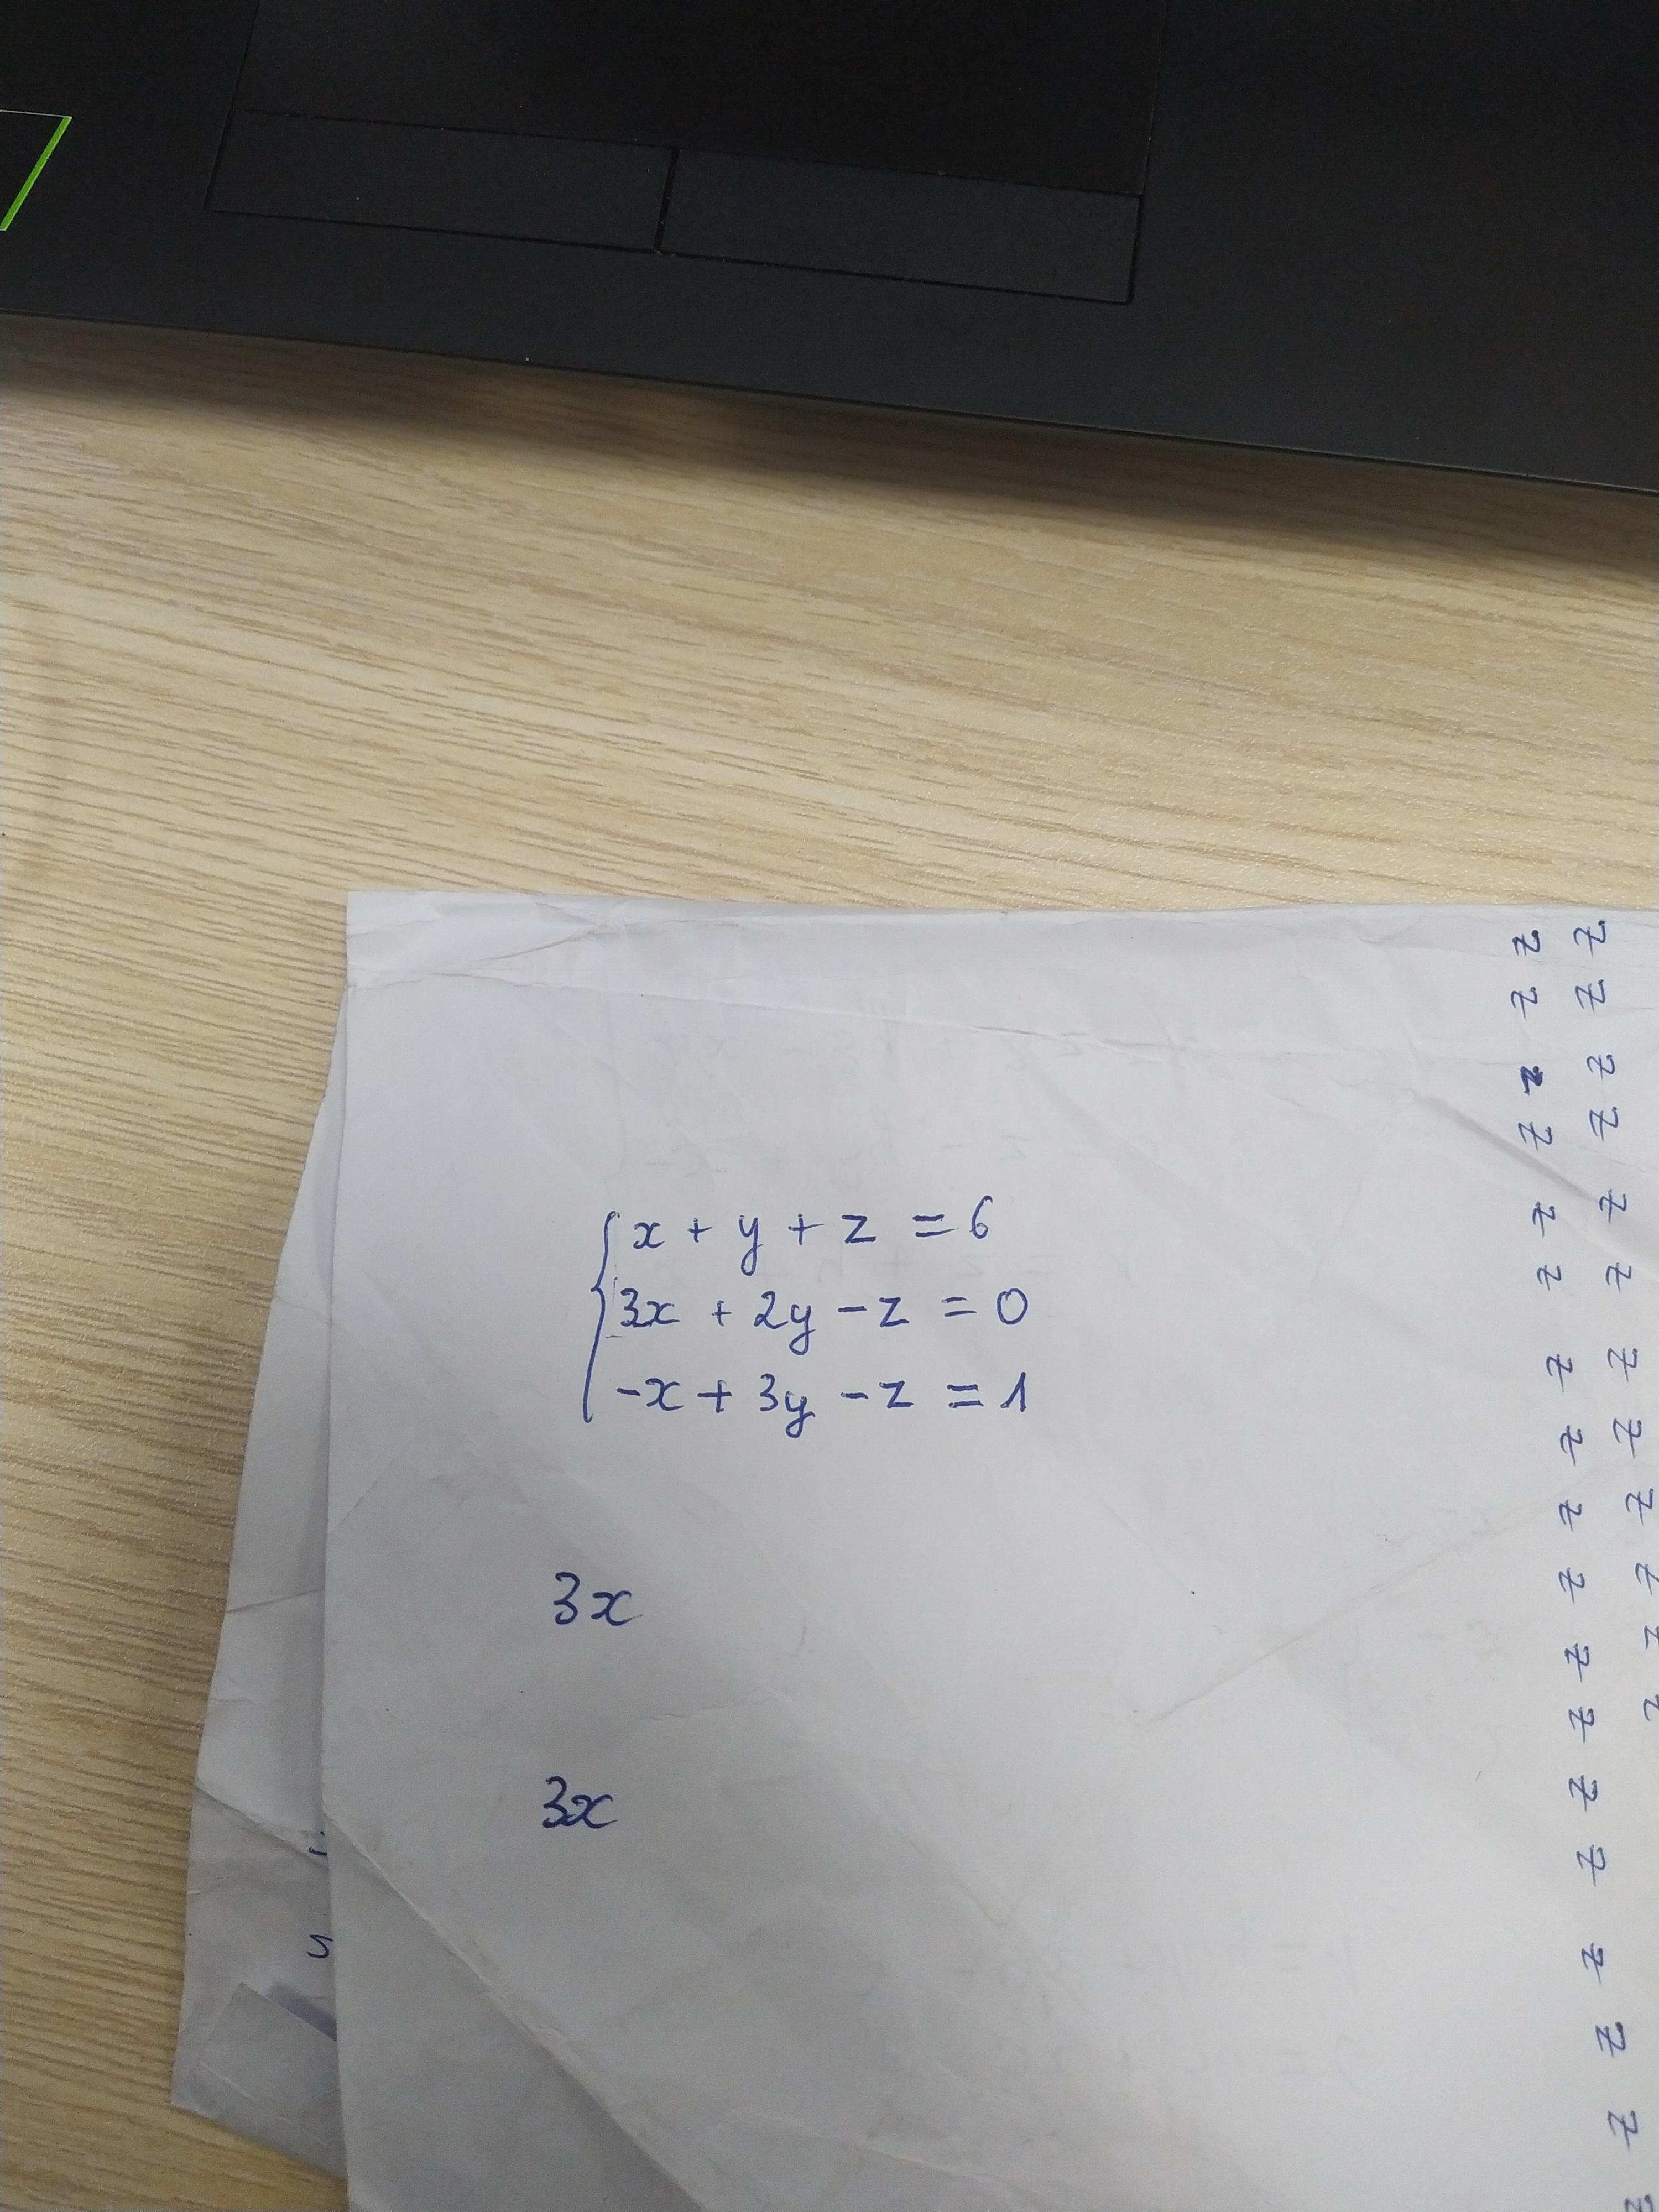 x + y + z = 6
3x + 2y - z = 0
-x + 3y - z = 1
3x
3x
z z z z z z z z z z z z
z z z z z z z z z z z z z z z z z z z